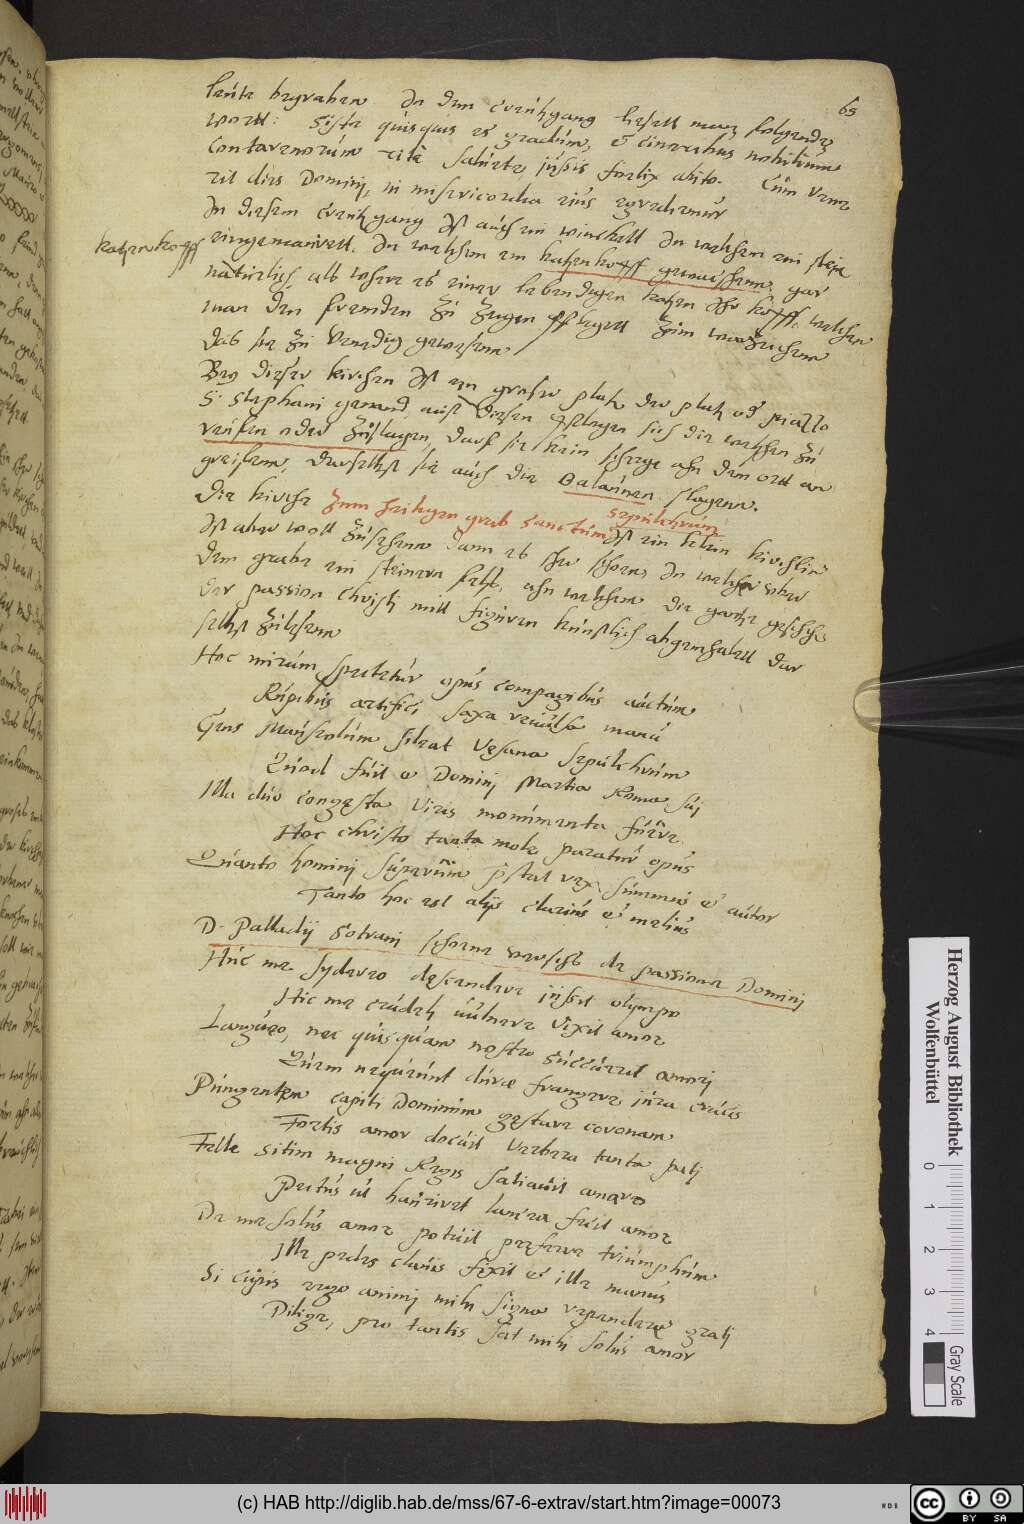 65
leüte begraben. In dem creützgang lieset man folgende
wortt: Siste quisquis es gradum, et cineribus nobilium
Contarenorum rite salute iussis foelix abito. Cum vene
rit dies Domini, in misericordia eius egrediemur
In diesem creützgang Ist auch ein winckell In welchem ein stein
Katzenkopff
eingemauirett. In welchem ein katzenkopff gewachsenn, gar
natürlich alß wehre es einer lebendigen katzen Ihr kopff, welchen
man den frembden zu zeigen pfleget zum warzeichenn
das sie zu Venedig gewesenn
Bey dieser kirchen Ist ein großer platz der platz od piazzo
S. Stephani genand, auff diesen pflegen sich die welschen zu
reüffen oder zuschlagen, darf sie kein scherge ahn dem ortt an
greiffenn, daselbst sie auch die Balaunen slagenn.
Die kirche zum heiligen grab sanctum sepulchrum
Ist ein klein kirchlin
Ist aber woll zusehenn dann es sehr schon, In welcher über
dem grabe ein steinern felß, ahn welchem die gantze geschicht
der passion Christi mitt figuren künstlich abgemahlett dar
selbst zulesenn
Hoc mirum spectatur opus compagibus auctum
Rupibus artifici saxa revulsa manu
Gens Mausolum sileat vesana sepulchrum
Quod fuit a Domini Martia Roma sui
Illa duo congesta viris monimenta fuere
Hoc christo tanta mole paratur opus
Quanto homini superum pstat rex summus et autor
Tanto hoc est alijs clarius et melius
D. Palladij Sorani schone versch de passione Domini
Huc me sydereo descendere jussit olympo
Hic me crudeli vulnere fixit amor
Langueo, nec quisquam nostro succurrit amori
Quem nequeunt durae frangere jura crucis
Pungentem capiti Dominum gestare coronam
Fortis amor docuit verbera tanta pati
Felle sitim magni Regis satiavit amaro
Pectus ut hauriret lancea fecit amor
De me solus amor potuit praeferre triumphum
Ille pedes clavis fixit et ille manus
Si cupis ergo animi mihi signa rependere grati
Dilige, pro tantis sat mihi solus amor
Herzog August Bibliothek
Wolfenbüttel
0 1 2 3 4
Gray Scale
(c) HAB http://diglib.hab.de/mss/67-6-extrav/start.htm?image=00073
WDB
CC BY SA